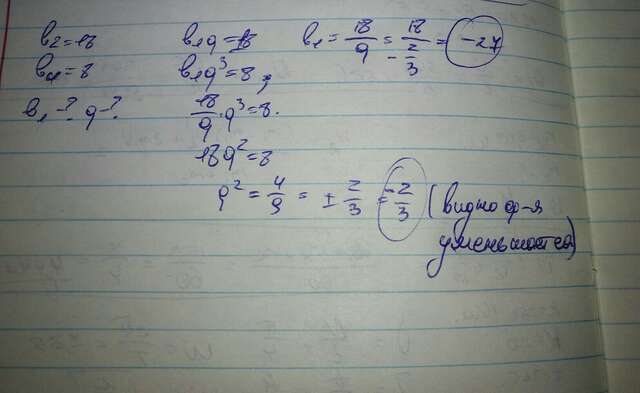 b₂=18
b₄=8
b₁-? q-?
b₁q=18
b₁q³=8;
18/q · q³=8.
18q²=8
q² = 4/9 = ± 2/3 = -2/3 (видно ф-я уменьшается)
b₁ = 18/q = 18/-2/3 = -27